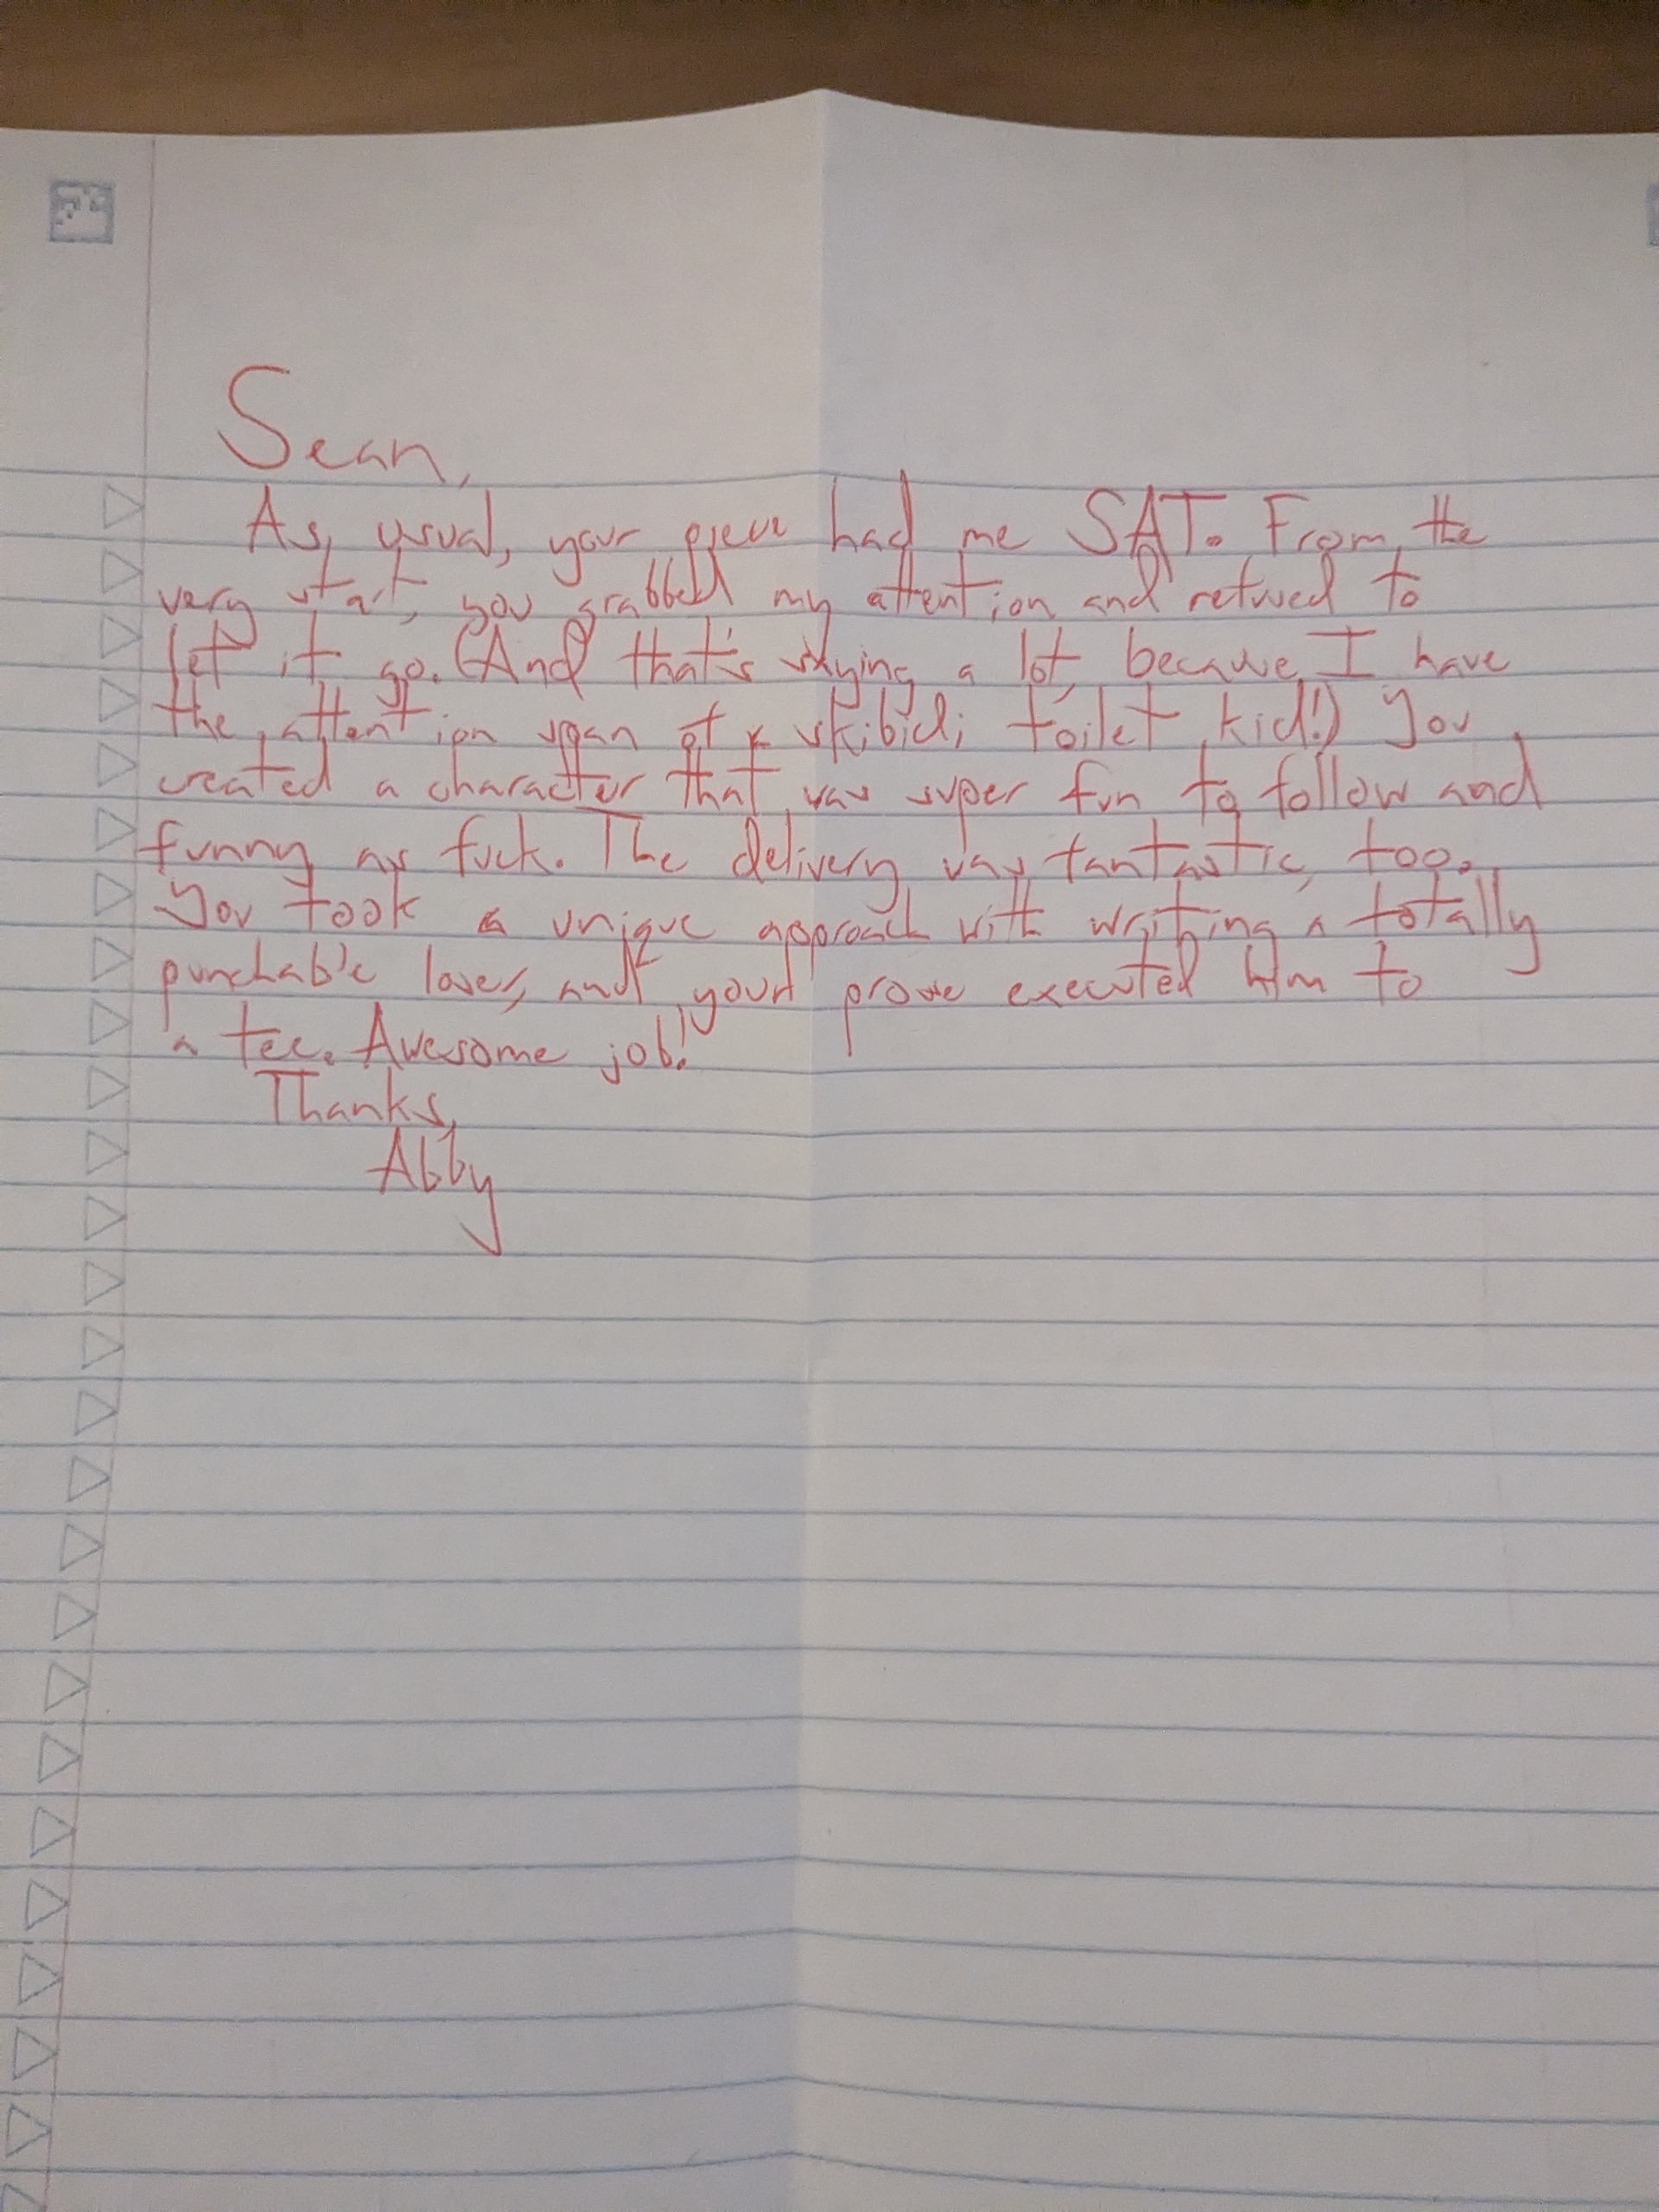 Sean,
As usual, your piece had me SAT. From the
very start, you grabbed my attention and refused to
let it go. (And that's saying a lot, because I have
the attention span of a skibidi toilet kid!) You
created a character that was super fun to follow and
funny as fuck. The delivery was fantastic, too.
You took a unique approach with writing a totally
punchable loser, and your prose executed him to
a tee. Awesome job!
Thanks,
Abby